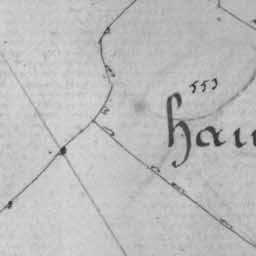 553
hau